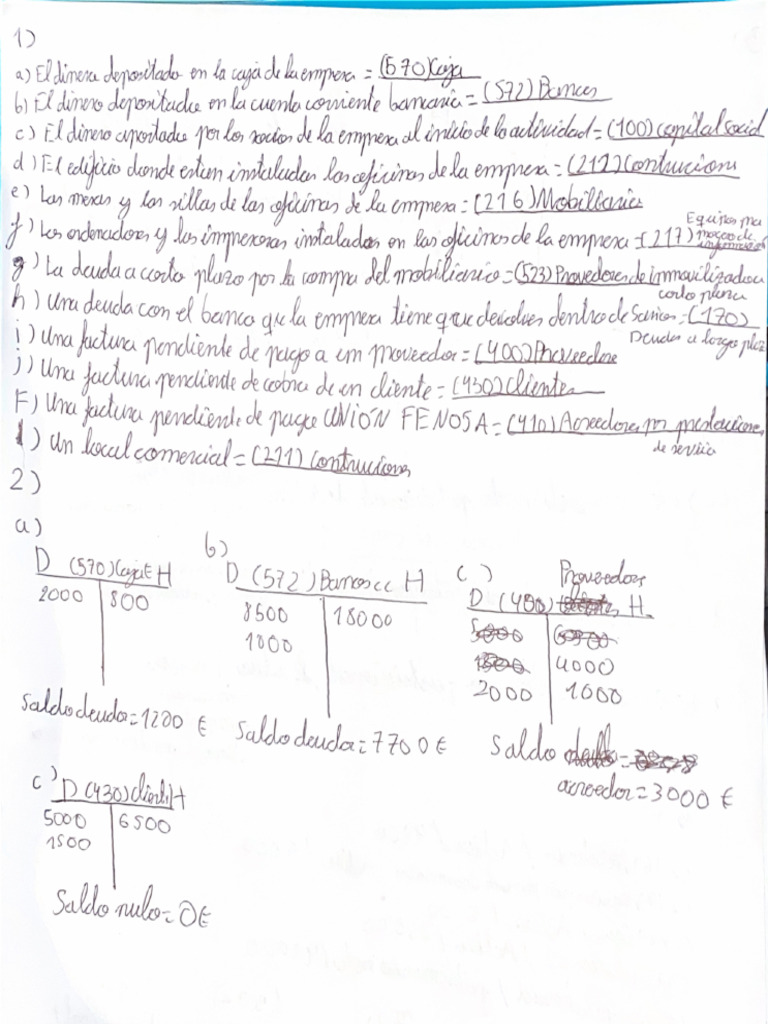 1)
a) El dinero depositado en la caja de la empresa = (570) Caja
b) El dinero depositado en la cuenta corriente bancaria = (572) Bancos
c) El dinero aportado por los socios de la empresa al inicio de la actividad = (100) capital social
d) El edificio donde estan instaladas las oficinas de la empresa = (211) Contrucions
e) Las mesas y las sillas de las oficinas de la empresa = (216) Mobiliario
f) Los ordenadores y las impresoras instalados en las oficinas de la empresa = (217) Equipos para proceso de información
g) La deuda a corto plazo por la compra del mobiliario = (523) Provedores de inmovilizado a corto plazo
h) Una deuda con el banco que la empresa tiene que devolver dentro de 5 años = (170) Deudas a largo plaz
i) Una factura pendiente de pago a un proveedor = (400) Proveedore
j) Una factura pendiente de cobro de un cliente = (430) Clientes
F) Una factura pendiente de pago UNIÓN FENOSA = (410) Acreedores por prestaciones de servicio
l) Un local comercial = (211) Contrucions
2)
a)
b)
c) Proveedores
D (570) Caja € H
D (572) Bancos cc H
D (400) H
2000 800
8500 18000
1000
4000
2000 1000
Saldo deudor = 1200 €
Saldo deudor = 7700 €
Saldo acreedor = 3000 €
c) D (430) clientes H
5000 6500
1500
Saldo nulo = 0€